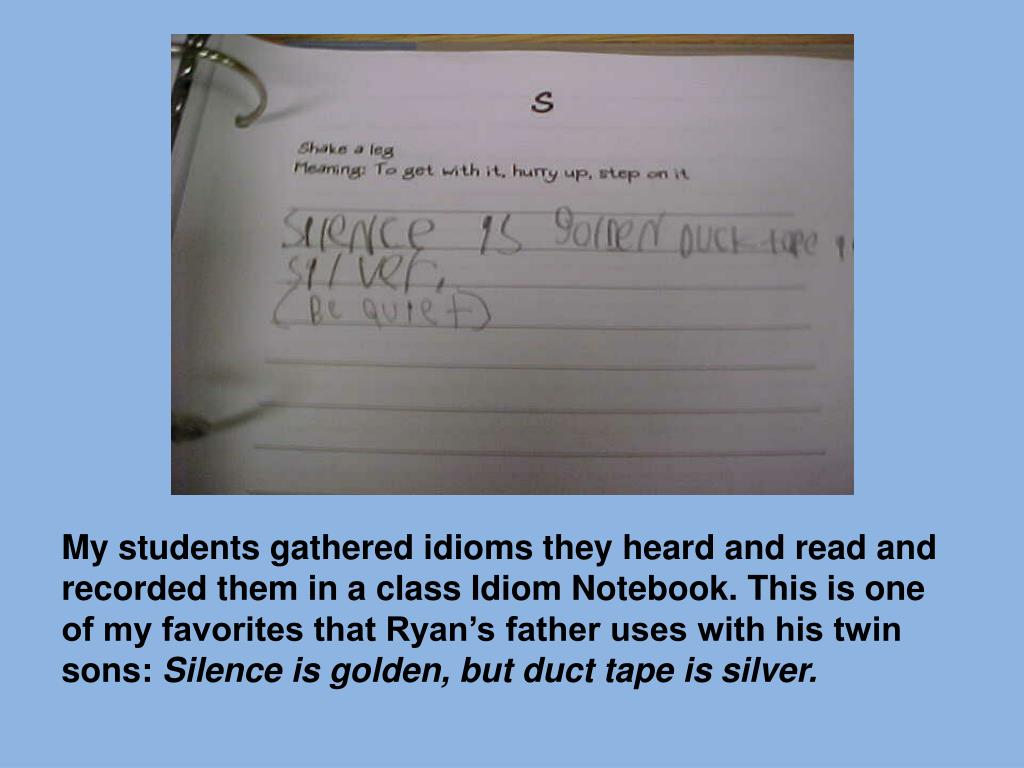 S
Shake a leg
Meaning: To get with it, hurry up, step on it
Silence is golden Duck tape
silver.
(Be quiet)
My students gathered idioms they heard and read and
recorded them in a class Idiom Notebook. This is one
of my favorites that Ryan’s father uses with his twin
sons: Silence is golden, but duct tape is silver.